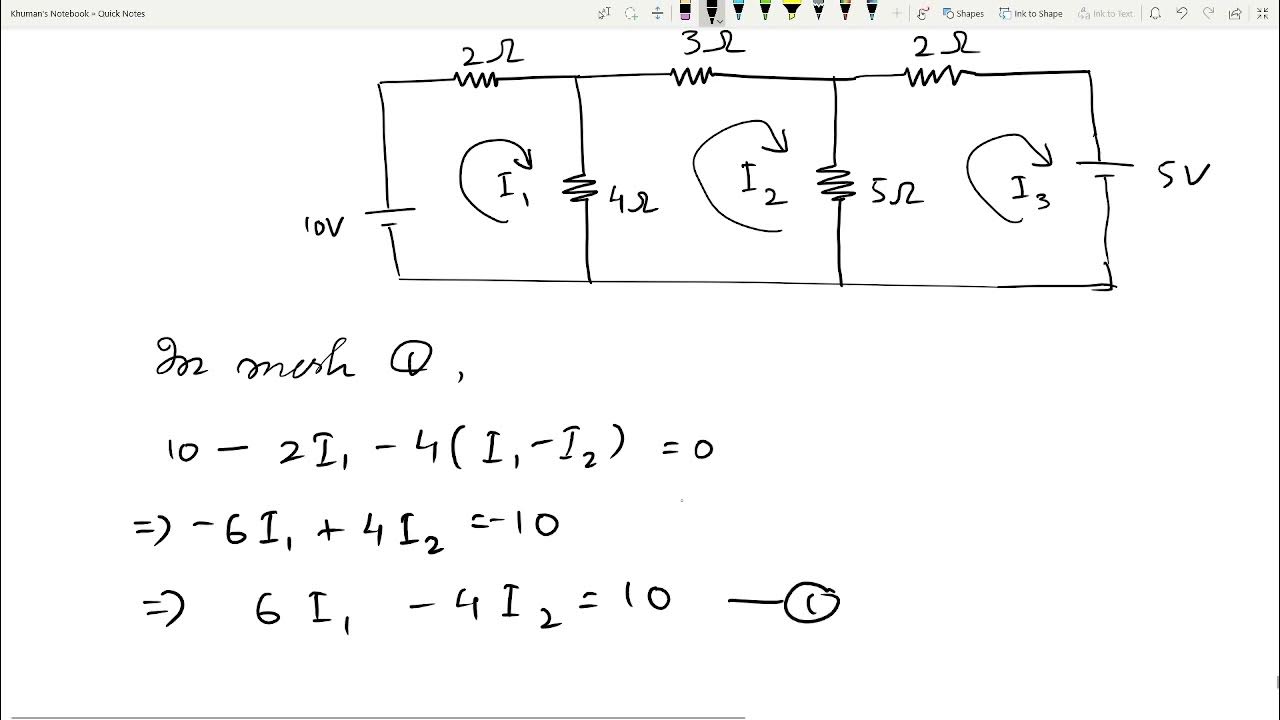 Khuman's Notebook - Quick Notes
Shapes Ink to Shape Ink to Text
2Ω 3Ω 2Ω
10V I₁ 4Ω I₂ 5Ω I₃ 5V
In mesh ①,
10 - 2I₁ - 4(I₁-I₂) = 0
=> -6I₁ + 4I₂ =-10
=> 6I₁ - 4I₂ = 10 —①